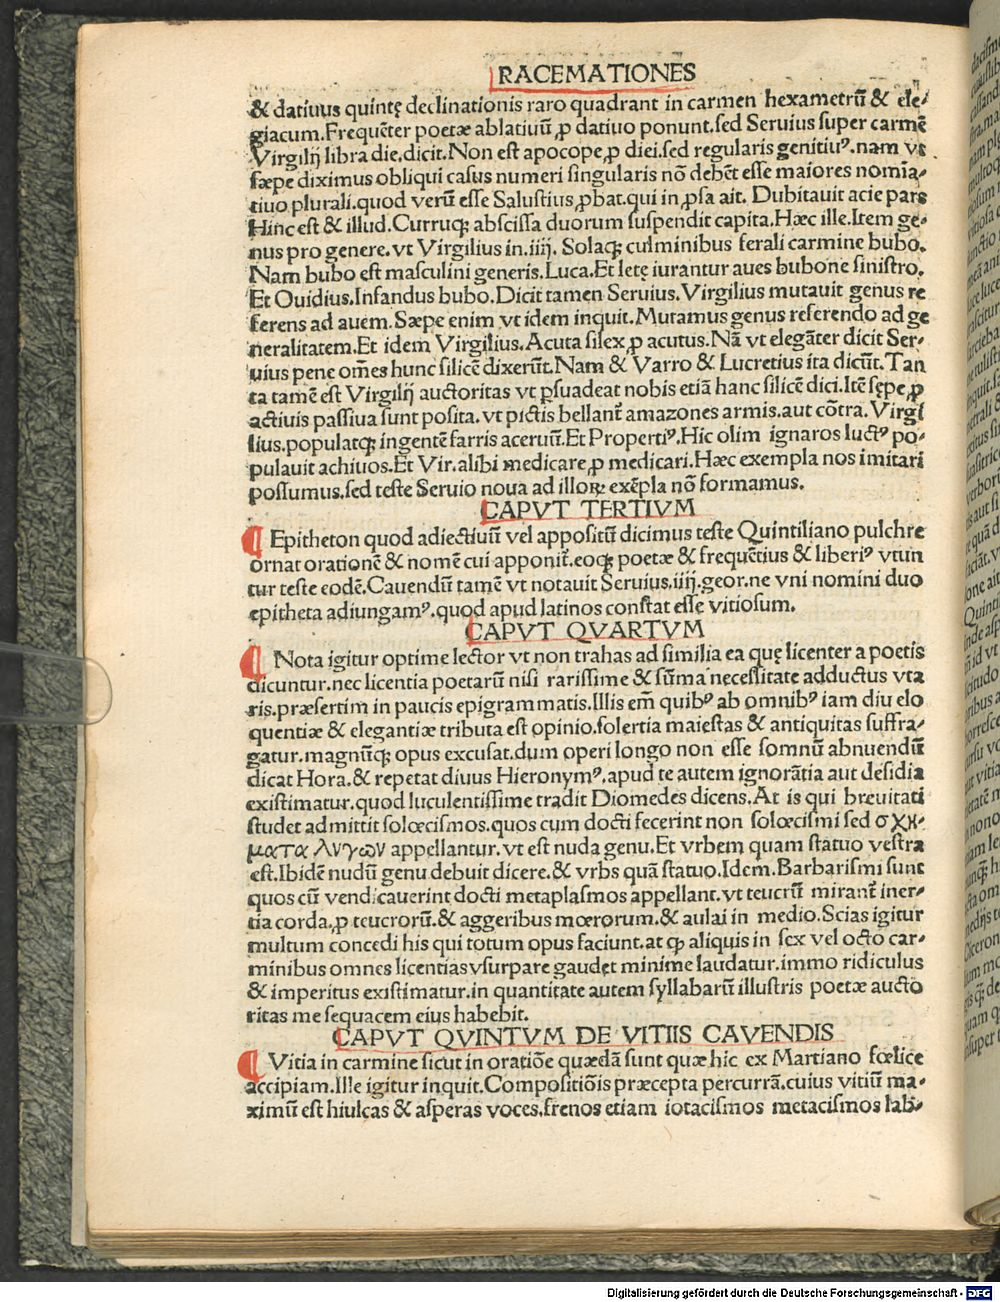 RACEMATIONES
& datiuus quintę declinationis raro quadrant in carmen hexametrū & ele⸗
giacum.Frequēter poetæ ablatiuū ꝓ datiuo ponunt.sed Seruius super carmē
Virgilij libra die.dicit.Non est apocope,ꝓ diei.sed regularis genitiuꝰ.nam vt
sæpe diximus obliqui casus numeri singularis nō debēt esse maiores nomīa⸗
tiuo plurali.quod verū esse Salustius ꝓbat.qui in ꝓsa ait. Dubitauit acie pars
Hinc est & illud. Curruqꝫ abscissa duorum suspendit capita. Hæc ille.Item ge⸗
nus pro genere.vt Virgilius in.iiij. Solaqꝫ culminibus ferali carmine bubo.
Nam bubo est masculini generis.Luca.Et lętę iurantur aues bubone sinistro.
Et Ouidius.Infandus bubo.Dicit tamen Seruius.Virgilius mutauit genus re
ferens ad auem.Sæpe enim vt idem inquit.Mutamus genus referendo ad ge
neralitatem.Et idem Virgilius.Acuta silex ꝓ acutus.Nā vt elegāter dicit Ser⸗
uius pene om̄es hunc silicē dixerūt.Nam & Varro & Lucretius ita dicūt.Tan
ta tamē est Virgilij auctoritas vt ꝑsuadeat nobis etiā hanc silicē dici.Itē sępe,ꝓ
actiuis passiua sunt posita.vt pictis bellant̄ amazones armis.aut cōtra.Virgi
lius.populatqꝫ ingentē farris aceruū.Et Propertiꝰ.Hic olim ignaros luctꝰ po⸗
pulauit achiuos.Et Vir.alibi medicare,ꝓ medicari.Hæc exempla nos imitari
possumus.sed teste Seruio noua ad illoꝝ exēpla nō formamus.
CAPVT TERTIVM
¶ Epitheton quod adiectiuū vel appositū dicimus teste Quintiliano pulchre
ornat orationē & nomē cui apponit̄.eoqꝫ poetæ & frequētius & liberiꝰ vtun
tur teste eodē.Cauendū tamē vt notauit Seruius.iiij.geor.ne vni nomini duo
epitheta adiungamꝰ.quod apud latinos constat esse vitiosum.
CAPVT QVARTVM
¶ Nota igitur optime lector vt non trahas ad similia ea quę licenter a poetis
dicuntur.nec licentia poetarū nisi rarissime & sūma necessitate adductus vta
ris.præsertim in paucis epigrammatis.Illis em̄ quibꝰ ab omnibꝰ iam diu elo
quentiæ & elegantiæ tributa est opinio.solertia maiestas & antiquitas suffra⸗
gatur.magnūqꝫ opus excusat.dum operi longo non esse somnū abnuendū
dicat Hora.& repetat diuus Hieronymꝰ.apud te autem ignorātia aut desidia
existimatur.quod luculentissime tradit Diomedes dicens.At is qui breuitati
studet admittit solœcismos.quos cum docti fecerint non solœcismi sed σχη⸗
ματα λυγων appellantur.vt est nuda genu.Et vrbem quam statuo vestra
est.Ibidē nudū genu debuit dicere.& vrbs quā statuo.Idem.Barbarismi sunt
quos cū vendicauerint docti metaplasmos appellant.vt teucrū mirant̄ iner⸗
tia corda,ꝓ teucrorū.& aggeribus mœrorum.& aulai in medio.Scias igitur
multum concedi his qui totum opus faciunt.at qꝫ aliquis in sex vel octo car⸗
minibus omnes licentias vsurpare gaudet minime laudatur.immo ridiculus
& imperitus existimatur.in quantitate autem syllabarū illustris poetæ aucto
ritas me sequacem eius habebit.
CAPVT QVINTVM DE VITIIS CAVENDIS
¶ Vitia in carmine sicut in oratiōe quædā sunt quæ hic ex Martiano fœlice
accipiam.Ille igitur inquit.Compositiōis præcepta percurrā.cuius vitiū ma⸗
ximū est hiulcas & asperas voces.frenos etiam iotacismos metacismos lab⸗
Digitalisierung gefördert durch die Deutsche Forschungsgemeinschaft - DFG